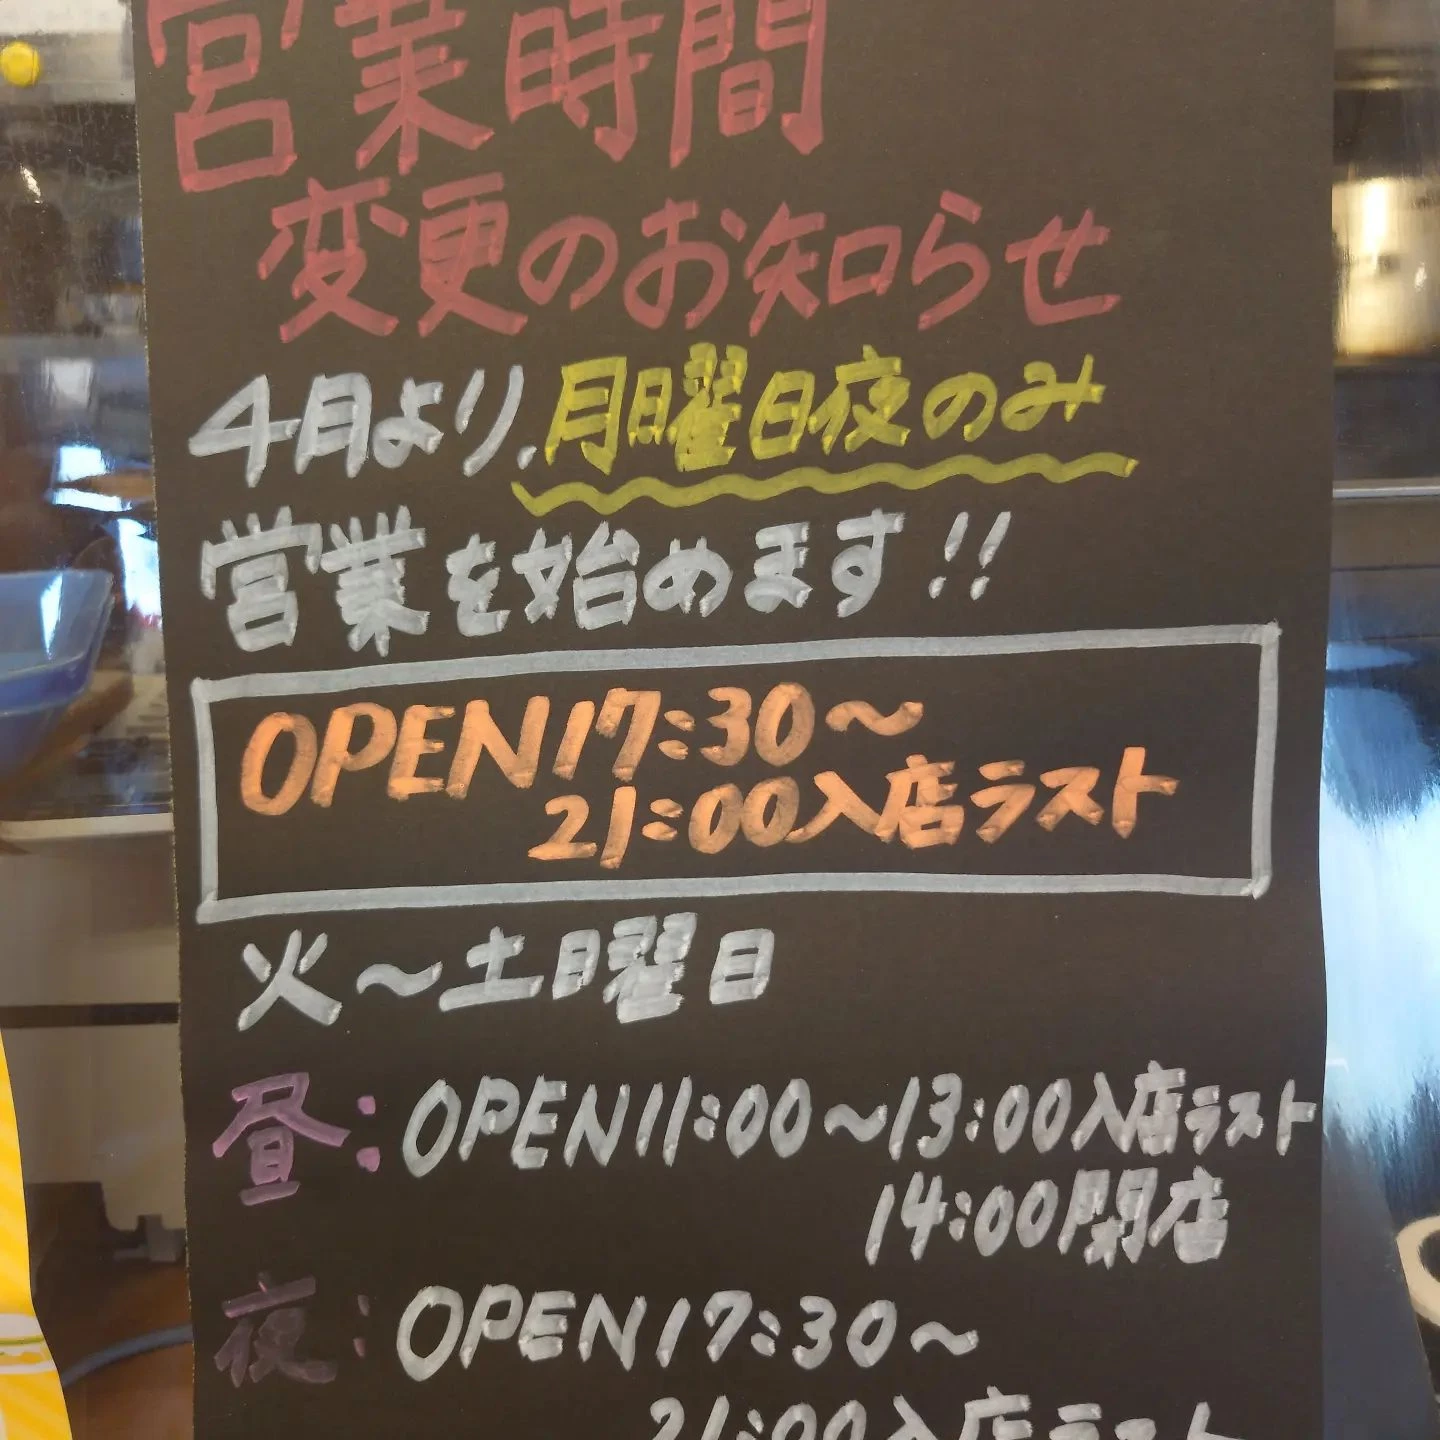 営業時間
変更のお知らせ
4月より、月曜日夜のみ
営業を始めます!!
OPEN17:30〜
21:00入店ラスト
火〜土曜日
昼:OPEN11:00〜13:00入店ラスト
14:00閉店
夜:OPEN17:30〜
21:00入店ラスト